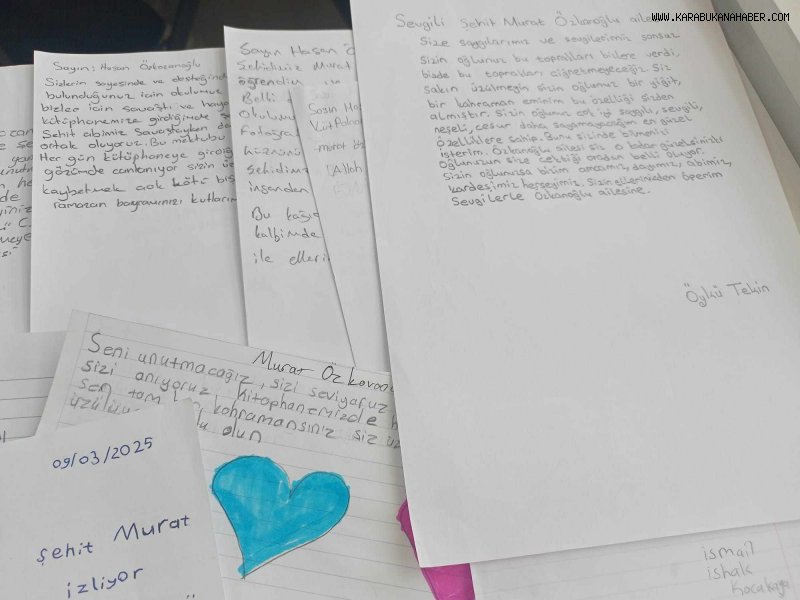 WWW.KARABUKANAHABER.COM
Sevgili Şehit Murat Özkanoğlu aile
Size saygılarımız ve sevgilerimiz sonsuz
Sizin oğlunuz bu toprakları bizlere verdi,
bizde bu toprakları çiğnetmeyeceğiz. Siz
sakın üzülmeyin sizin oğlunuz bir yiğit,
bir kahraman eminim bu özelliği sizden
almıştır. Sizin oğlunuz çok iyi saygılı, sevgili,
neşeli, cesur daha sayamayacağım en güzel
özelliklere sahip. Bunu sizinde bilmenizi
isterim. Özkanoğlu ailesi siz o kadar güzelsinizki
Oğlunuzun size çektiği oradan belli oluyor.
Sizin oğlunuzsa bizim amcamız, dayımız, abimiz,
kardeşimiz herşeyimiz. Sizin ellerinizden öperim
Sevgilerle Özkanoğlu ailesine.
Öykü Tekin
Sayın; Hasan
Sizlerin sayesinde ve desteğind
bulunduğunuz için okulumuz
bizler için savaştı ve haya
kütüphanemize girdiğimde ş
Şehit abimiz Savaştayken da
ortak oluyoruz. Bu mektubu
Her gün kütüphaneye girdiğ
gözümde canlanıyor sizin
kaybetmek çok kötü bir
ramazan bayramınızı kutların
Sayın Hasan Ö
Şehidimiz Murat
öğrendim
Belli
Okulumu
Fotoğraf
hüznünü
Şehidimiz
insanden
Bu kağıd
kalbimde
ile elleri
Sayın Ha
murat
Allah
Murat
Seni unutmacağız, sizi seviyoruz
sizi anıyoruz kitophanemizde
sen tam kohramansınız siz üz
olun
09/03/2025
şehit Murat
izliyor
ismail
ishak
Kocakaya